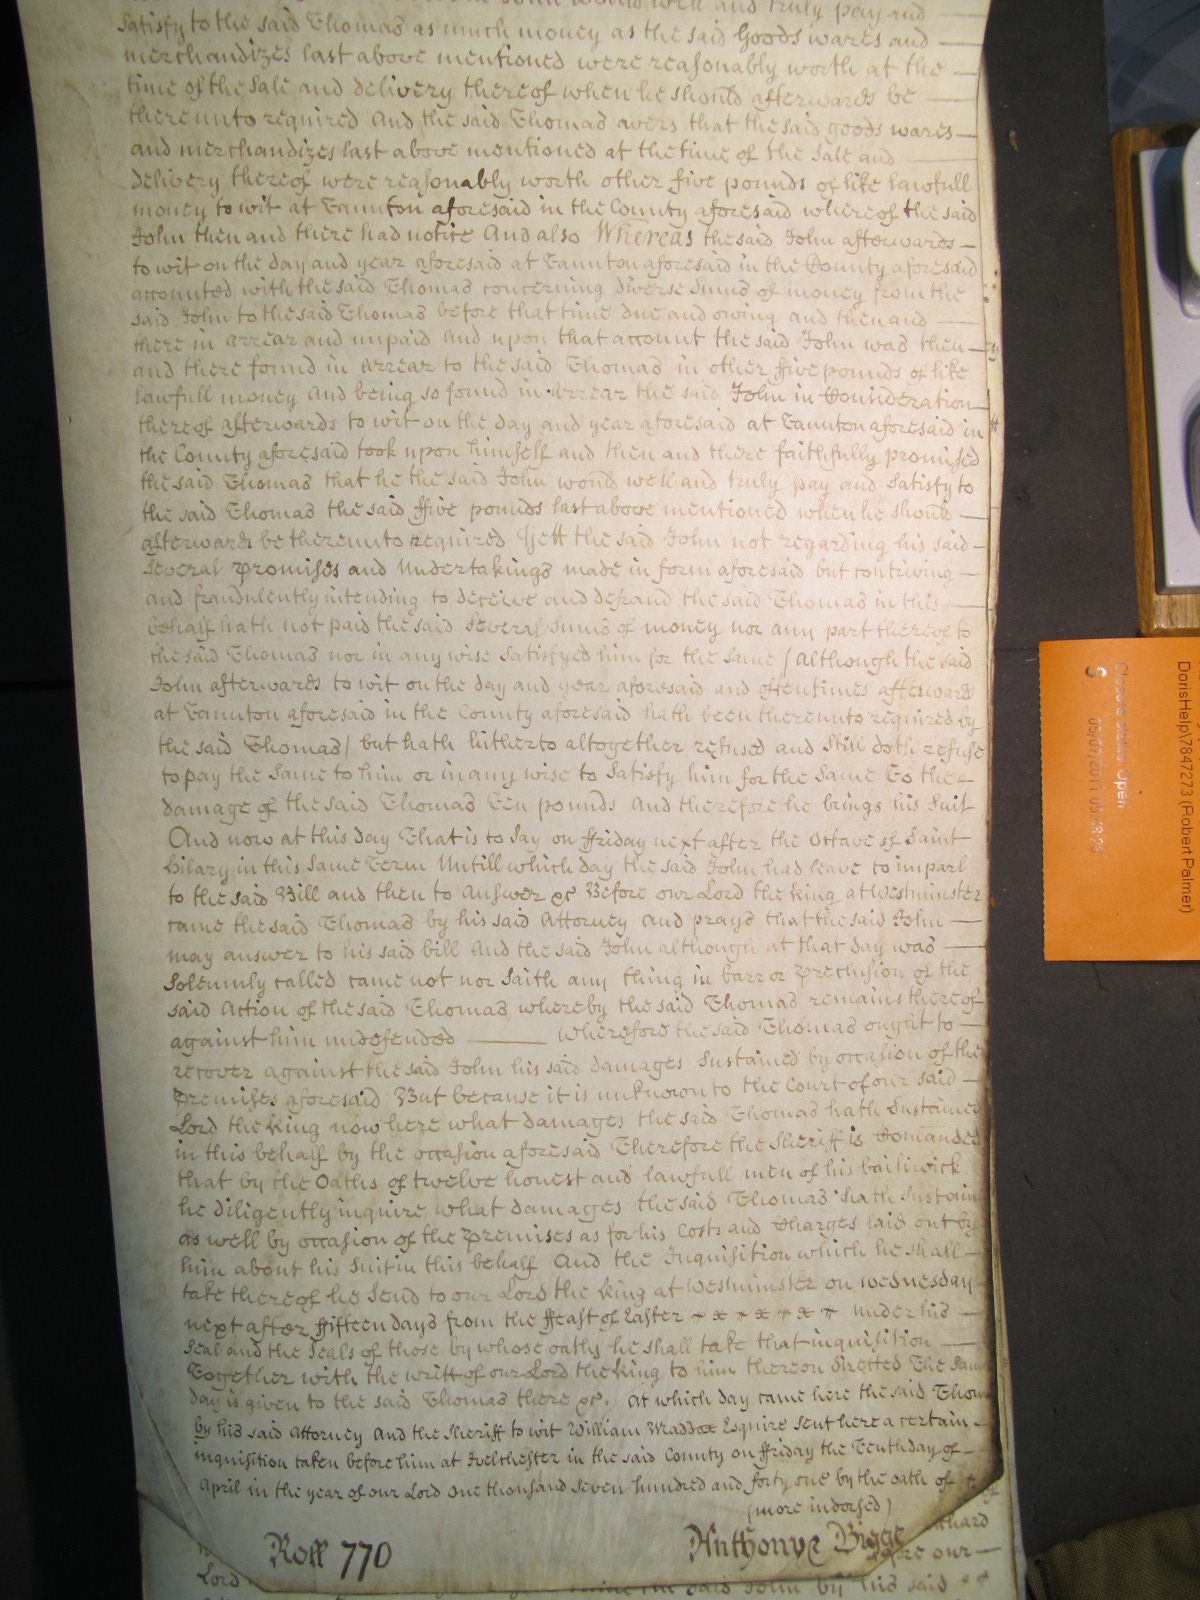 John would well and truly pay and
Satisfy to the said Thomas as much money as the said Goods wares and
merchandizes last above mentioned were reasonably worth at the
time of the Sale and delivery thereof when he should afterwards be
thereunto required And the said Thomas avers that the said goods wares
and merchandizes last above mentioned at the time of the Sale and
delivery thereof were reasonably worth other five pounds of like lawfull
money to wit at Taunton aforesaid in the County aforesaid whereof the said
John then and there had notice And also Whereas the said John afterwards
to wit on the day and year aforesaid at Taunton aforesaid in the County aforesaid
accounted with the said Thomas concerning diverse Sums of money from the
said John to the said Thomas before that time due and owing and then and
there in arrear and unpaid And upon that account the said John was then
and there found in Arrear to the said Thomas in other ffive pounds of like
lawfull money And being so found in Arrear the said John in Consideration
thereof afterwards to wit on the day and year aforesaid at Taunton aforesaid in
the County aforesaid took upon himself and then and there faithfully promised
the said Thomas that he the said John would well and truly pay and Satisfy to
the said Thomas the said ffive pounds last above mentioned when he should
afterwards be thereunto required Yett the said John not regarding his said
Several promises and Undertakings made in form aforesaid but contriving
and fraudulently intending to deceive and defraud the said Thomas in this
behalf hath not paid the said Several Sums of money nor any part thereof to
the said Thomas nor in any wise Satisfyed him for the same (although the said
John afterwards to wit on the day and year aforesaid and oftentimes afterwards
at Taunton aforesaid in the County aforesaid hath been thereunto required by
the said Thomas) but hath hitherto altogether refused and Still doth refuse
to pay the Same to him or in any wise to Satisfy him for the Same To the
damage of the said Thomas Ten pounds And therefore he brings his Suit
And now at this day That is to Say on ffriday next after the Octave of Saint
Hilary in this Same Term Untill which day the said John had leave to imparl
to the said Bill and then to Answer &c Before our Lord the King at Westminster
came the said Thomas by his said Attorney And prays that the said John
may answer to his said bill And the said John although at that day was
Solemnly called came not nor Saith any thing in barr or preclusion of the
said Action of the said Thomas whereby the said Thomas remains thereof
against him undefended Wherefore the said Thomas ought to
recover against the said John his said damages Sustained by occasion of the
Premises aforesaid But because it is unknown to the Court of our said
Lord the King now here what damages the said Thomas hath Sustained
in this behalf by the occasion aforesaid Therefore the Sheriff is Comanded
that by the Oaths of twelve honest and lawfull men of his bailiwick
he diligently inquire what damages the said Thomas hath Sustain
as well by occasion of the Premises as for his Costs and Charges laid out by
him about his Suit in this behalf And the Inquisition which he shall
take thereof he Send to our Lord the King at Westminster on Wednesday
next after ffifteen days from the ffeast of Easter under his
Seal and the Seals of those by whose oaths he shall take that inquisition
Together with the writt of our Lord the King to him thereon directed The Same
day is given to the said Thomas there &c. At which day came here the said Thom
by his said Attorney And the Sheriff to wit William Esquire Sent here a certain
inquisition taken before him at Ivelchester in the said County on ffriday the Tenth day of
April in the year of our Lord One thousand Seven hundred and forty one by the oath of
(more indorsed)
Roll 770
Anthonye Bigge
our
Lord
said John by his said
DorisHelp\7847273 (Robert Palmer)
Open
05/07/2011